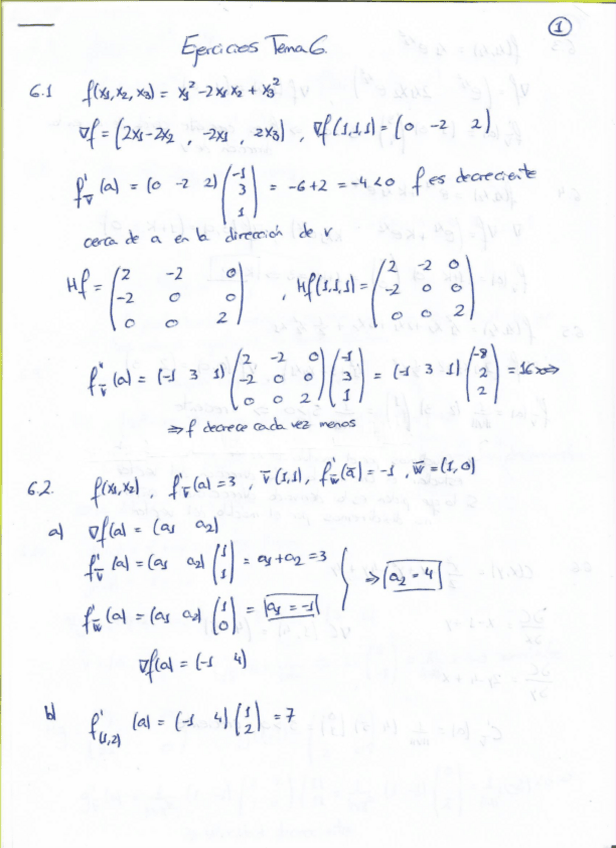 1
Ejercicios Tema 6.
6.1 f(x1,x2,x3) = x1² - 2x1x2 + x3²
∇f = (2x1-2x2 , -2x1 , 2x3) , ∇f(1,1,1) = (0 -2 2)
f'v̄(a) = (0 -2 2) (-1 3 1) = -6+2 = -4 < 0 f es decreciente
cerca de a en la dirección de v
Hf = (2 -2 0 / -2 0 0 / 0 0 2) , Hf(1,1,1) = (2 -2 0 / -2 0 0 / 0 0 2)
f''v̄(a) = (-1 3 1) (2 -2 0 / -2 0 0 / 0 0 2) (-1 3 1) = (-1 3 1) (-8 2 2) = 16>0 ⇒
⇒ f decrece cada vez menos
6.2. f(x1,x2) , f'v̄(a) = 3 , v̄(1,1) , f'w̄(ā) = -1 , w̄ = (1,0)
a) ∇f(a) = (a1 a2)
f'v̄(a) = (a1 a2) (1 1) = a1+a2 = 3
⇒ a2 = 4
f'w̄(a) = (a1 a2) (1 0) = a1 = -1
∇f(a) = (-1 4)
b) f'(1,2)(a) = (-1 4) (1 2) = 7